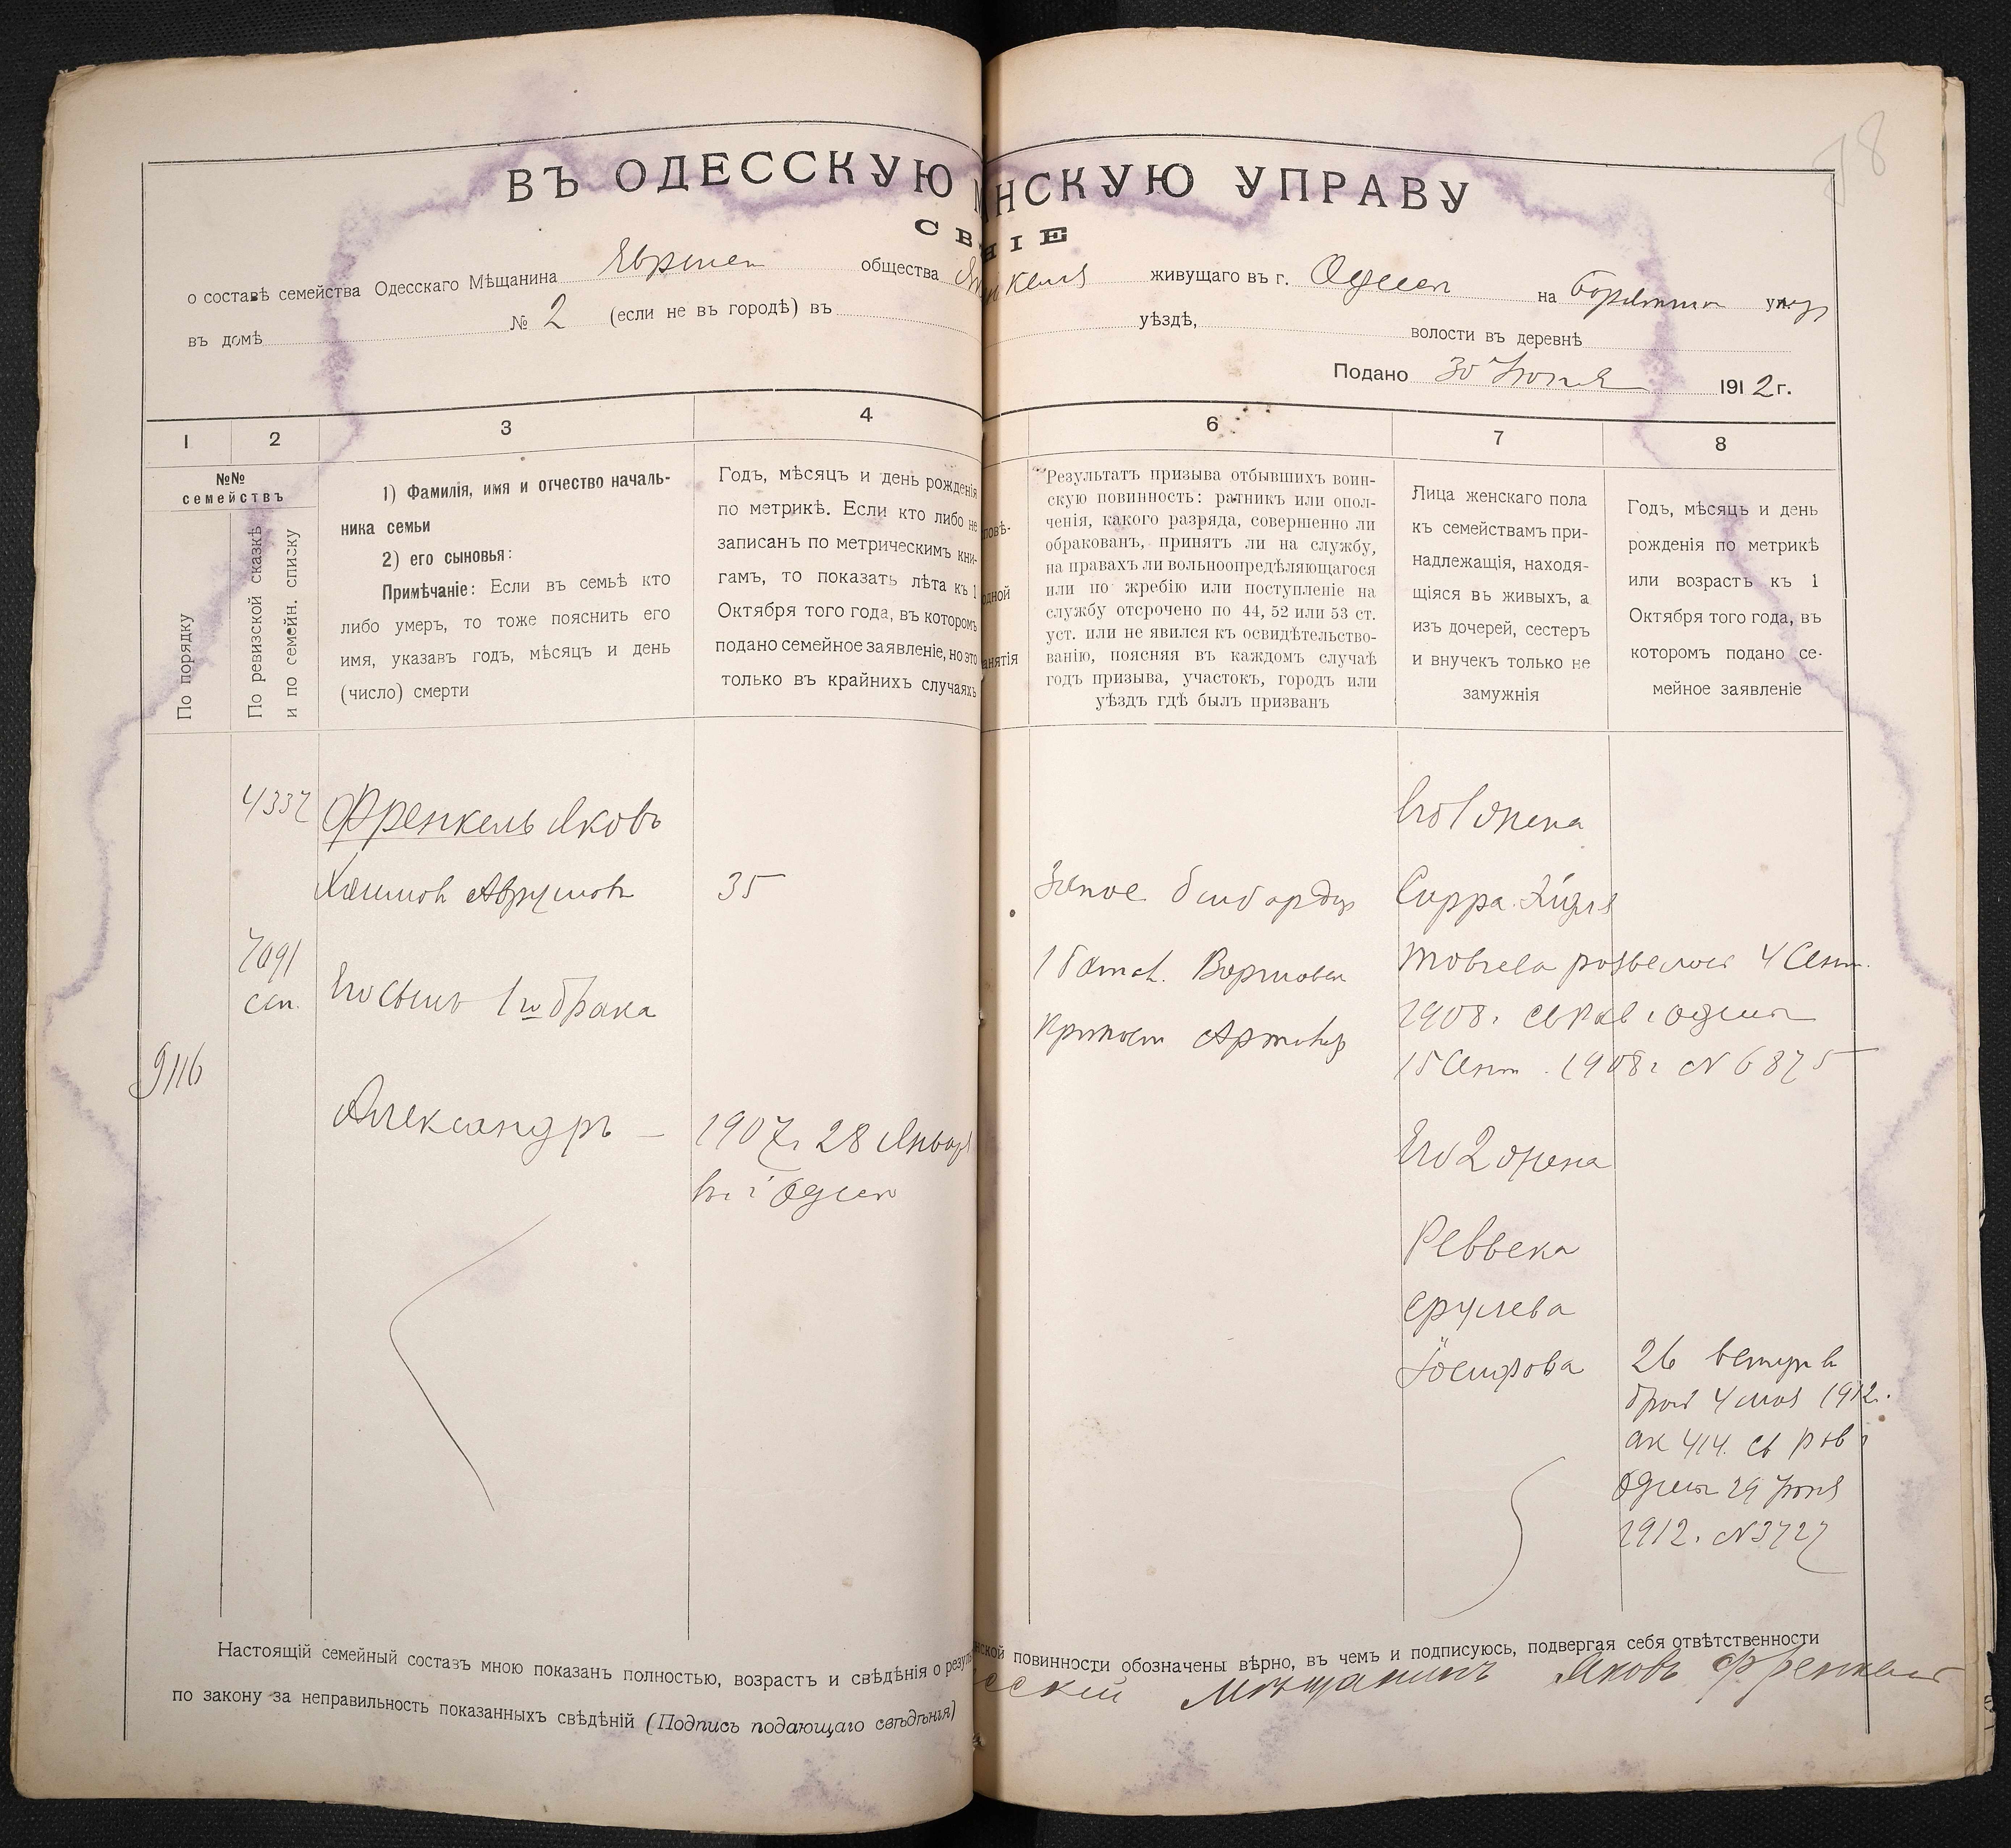 78
ВЪ ОДЕССКУЮ НСКУЮ УПРАВУ
СВ НІЕ
о составѣ семейства Одесскаго Мѣщанина общества живущаго въ г. Одессѣ на ул.
въ домѣ № 2 (если не въ городѣ) въ уѣздѣ, волости въ деревнѣ
Подано 30 Іюня 1912 г.
1 2 3 4 6 7 8
№№
семействъ
По порядку
По ревизской сказкѣ
и по семейн. списку
1) Фамилія, имя и отчество началь-
ника семьи
2) его сыновья:
Примѣчаніе: Если въ семьѣ кто
либо умеръ, то тоже пояснить его
имя, указавъ годъ, мѣсяцъ и день
(число) смерти
Годъ, мѣсяцъ и день рожденія
по метрикѣ. Если кто либо не
записанъ по метрическимъ кни-
гамъ, то показать лѣта къ 1
Октября того года, въ которомъ
подано семейное заявленіе, но это
только въ крайнихъ случаяхъ
повѣ-
одной
анятія
Результатъ призыва отбывшихъ воин-
скую повинность: ратникъ или опол-
ченія, какого разряда, совершенно ли
обракованъ, принятъ ли на службу,
на правахъ ли вольноопредѣляющагося
или по жребію или поступленіе на
службу отсрочено по 44, 52 или 53 ст.
уст. или не явился къ освидѣтельство-
ванію, поясняя въ каждомъ случаѣ
годъ призыва, участокъ, городъ или
уѣздъ гдѣ былъ призванъ
Лица женскаго пола
къ семействамъ при-
надлежащія, находя-
щіяся въ живыхъ, а
изъ дочерей, сестеръ
и внучекъ только не
замужнія
Годъ, мѣсяцъ и день
рожденія по метрикѣ
или возрастъ къ 1
Октября того года, въ
которомъ подано се-
мейное заявленіе
4337 Френкель Яковъ
Хаимовъ Аврумовъ 35
7091
сп. Его сынъ 1го брака
9116
Александръ — 1907 г. 28 Января
въ г. Одессѣ
Запас. бомбардир
1 батал. Варшавск
крѣпост Артил
Его 1 жена
Сурра
4 Сент.
1908 г.
15 Сент. 1908 г. N 6875
Его 2 жена
Реввека
Срулева
Іосифова 26 вступ. въ
бракъ 4 мая 1912 г.
ак 414. св рав
Одессы 29 Іюня
1912 г. N 3727
Настоящій семейный составъ мною показанъ полностью, возрастъ и свѣдѣнія о резуль нской повинности обозначены вѣрно, въ чемъ и подписуюсь, подвергая себя отвѣтственности
по закону за неправильность показанныхъ свѣдѣній (Подпись подающаго свѣдѣнія) сскій Мѣщанинъ Яковъ Френкель